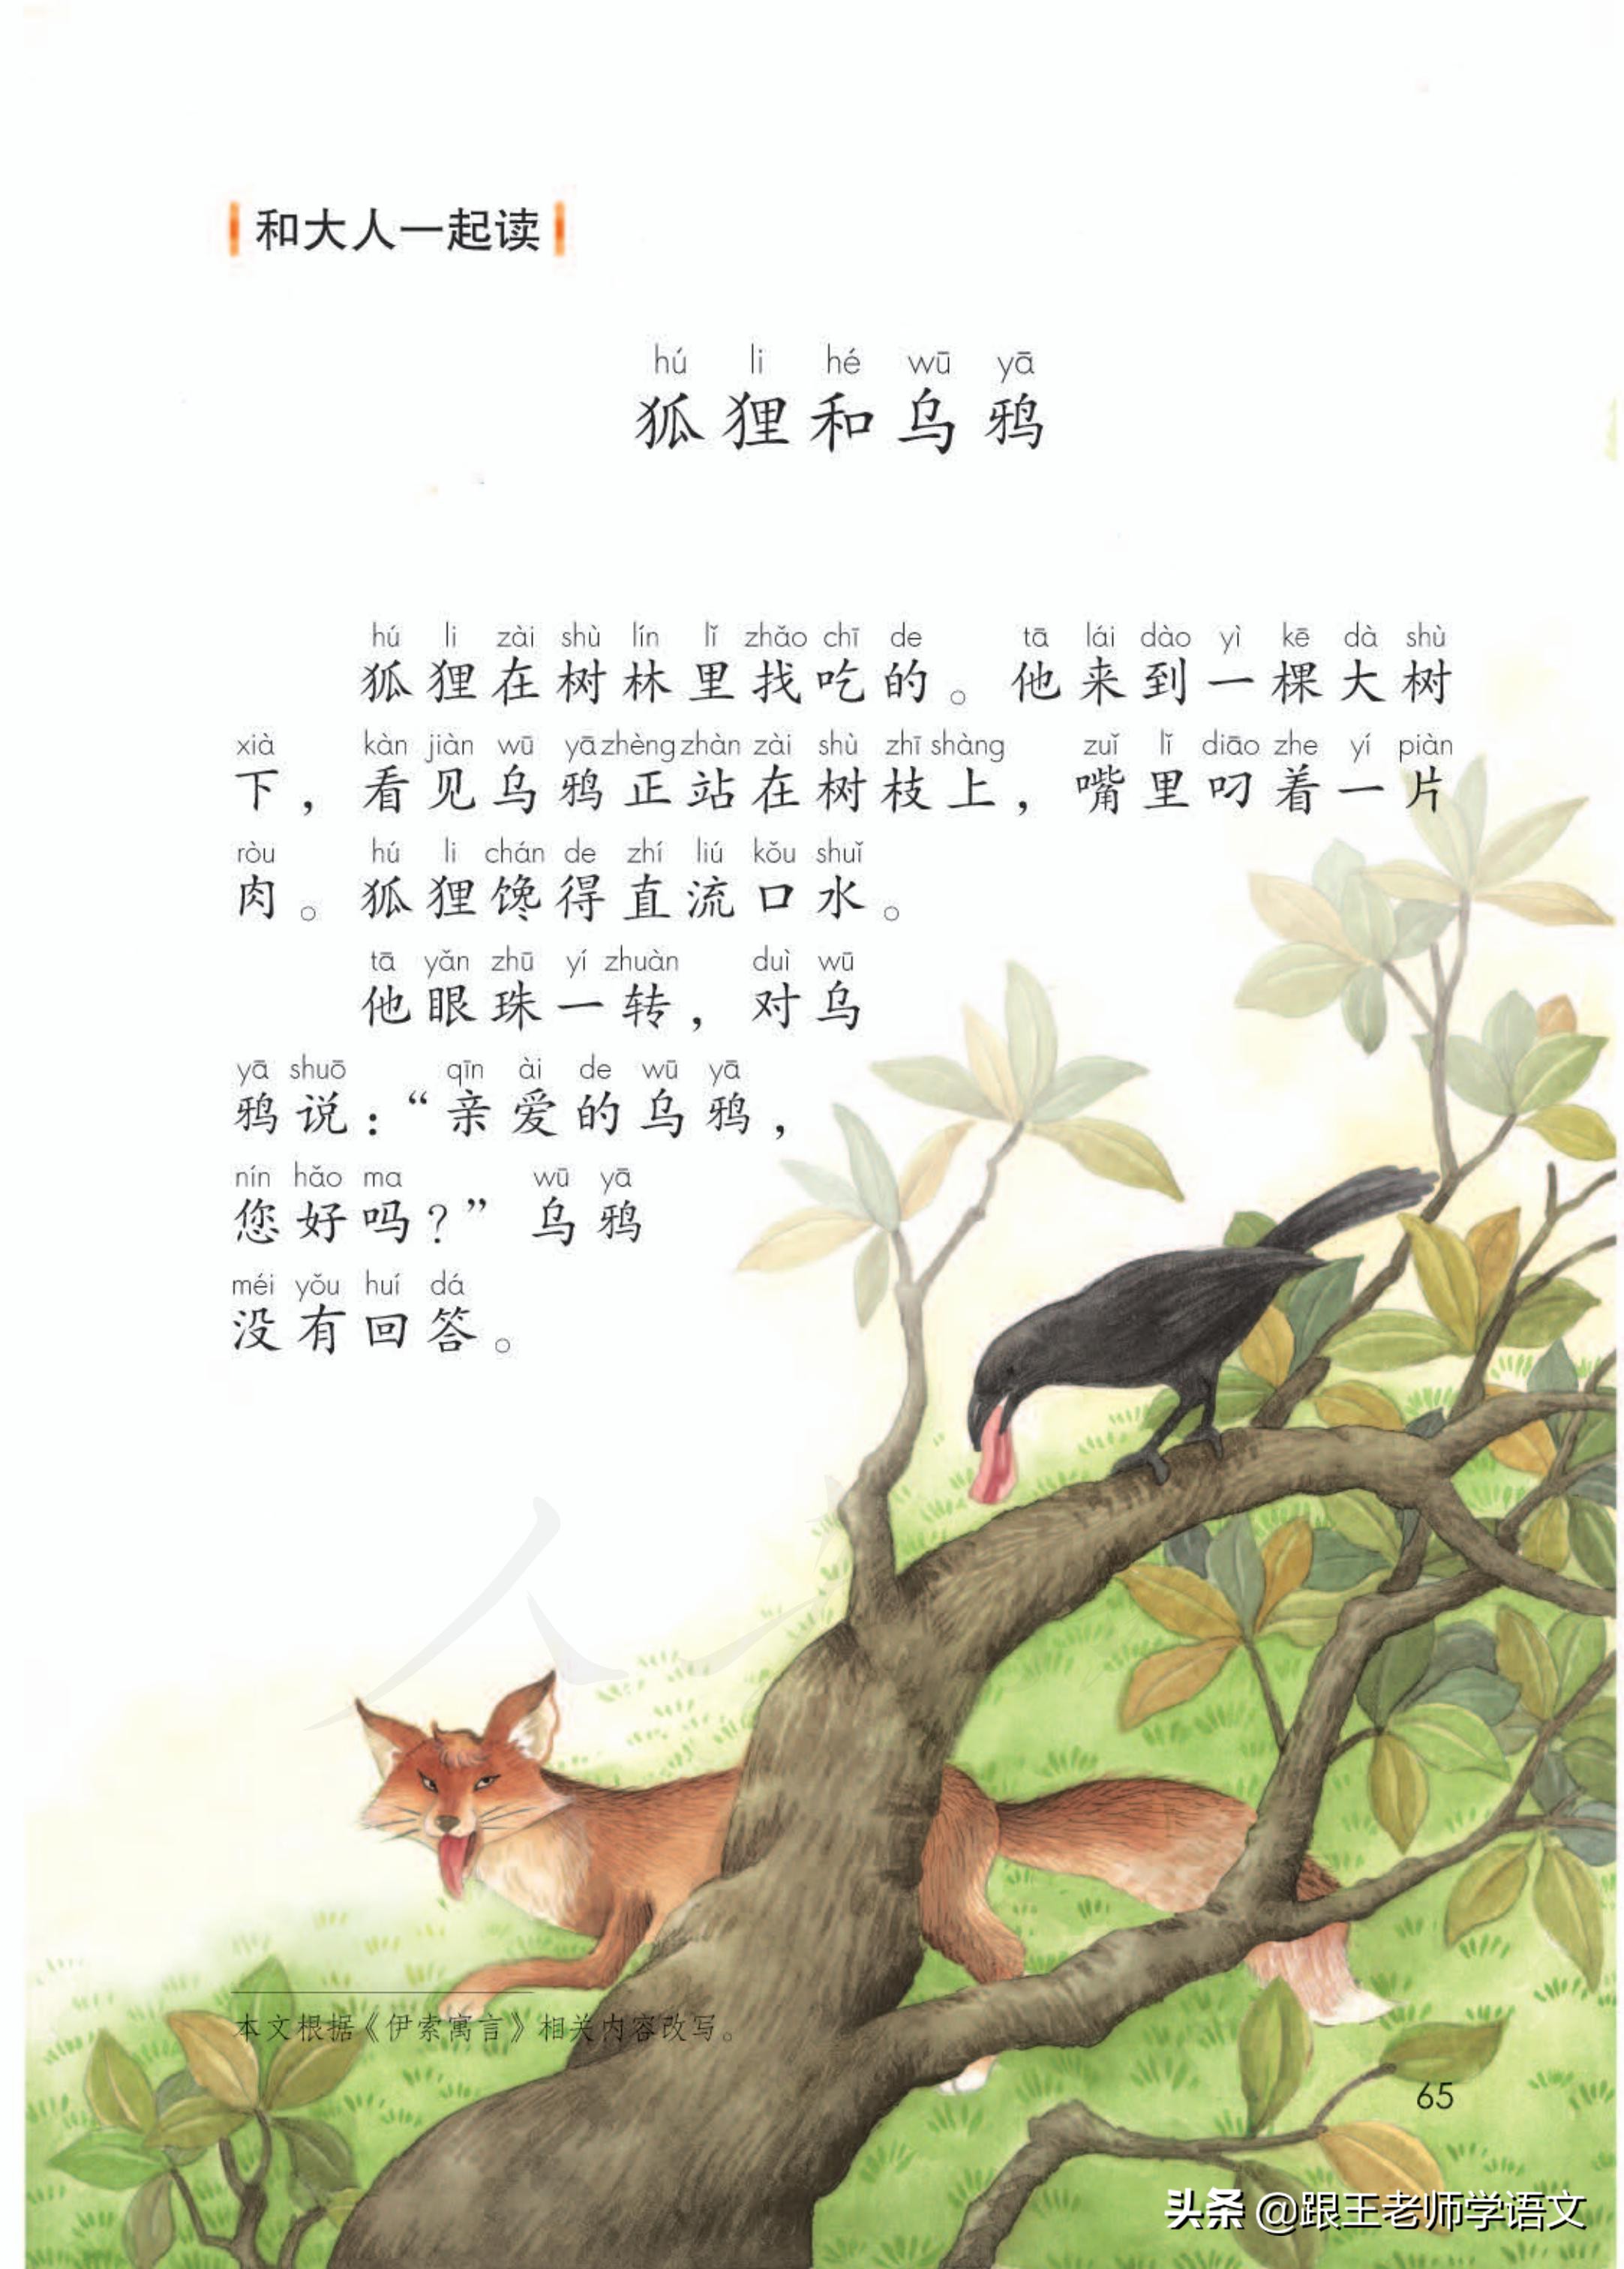 和大人一起读
hú li hé wū yā
狐狸和乌鸦
hú li zài shù lín lǐ zhǎo chī de tā lái dào yì kē dà shù
狐狸在树林里找吃的。他来到一棵大树
xià kàn jiàn wū yā zhèng zhàn zài shù zhī shàng zuǐ lǐ diāo zhe yí piàn
下，看见乌鸦正站在树枝上，嘴里叼着一片
ròu hú li chán de zhí liú kǒu shuǐ
肉。狐狸馋得直流口水。
tā yǎn zhū yí zhuàn duì wū
他眼珠一转，对乌
yā shuō qīn ài de wū yā
鸦说：“亲爱的乌鸦，
nín hǎo ma wū yā
您好吗？”乌鸦
méi yǒu huí dá
没有回答。
本文根据《伊索寓言》相关内容改写。
65
头条 @跟王老师学语文